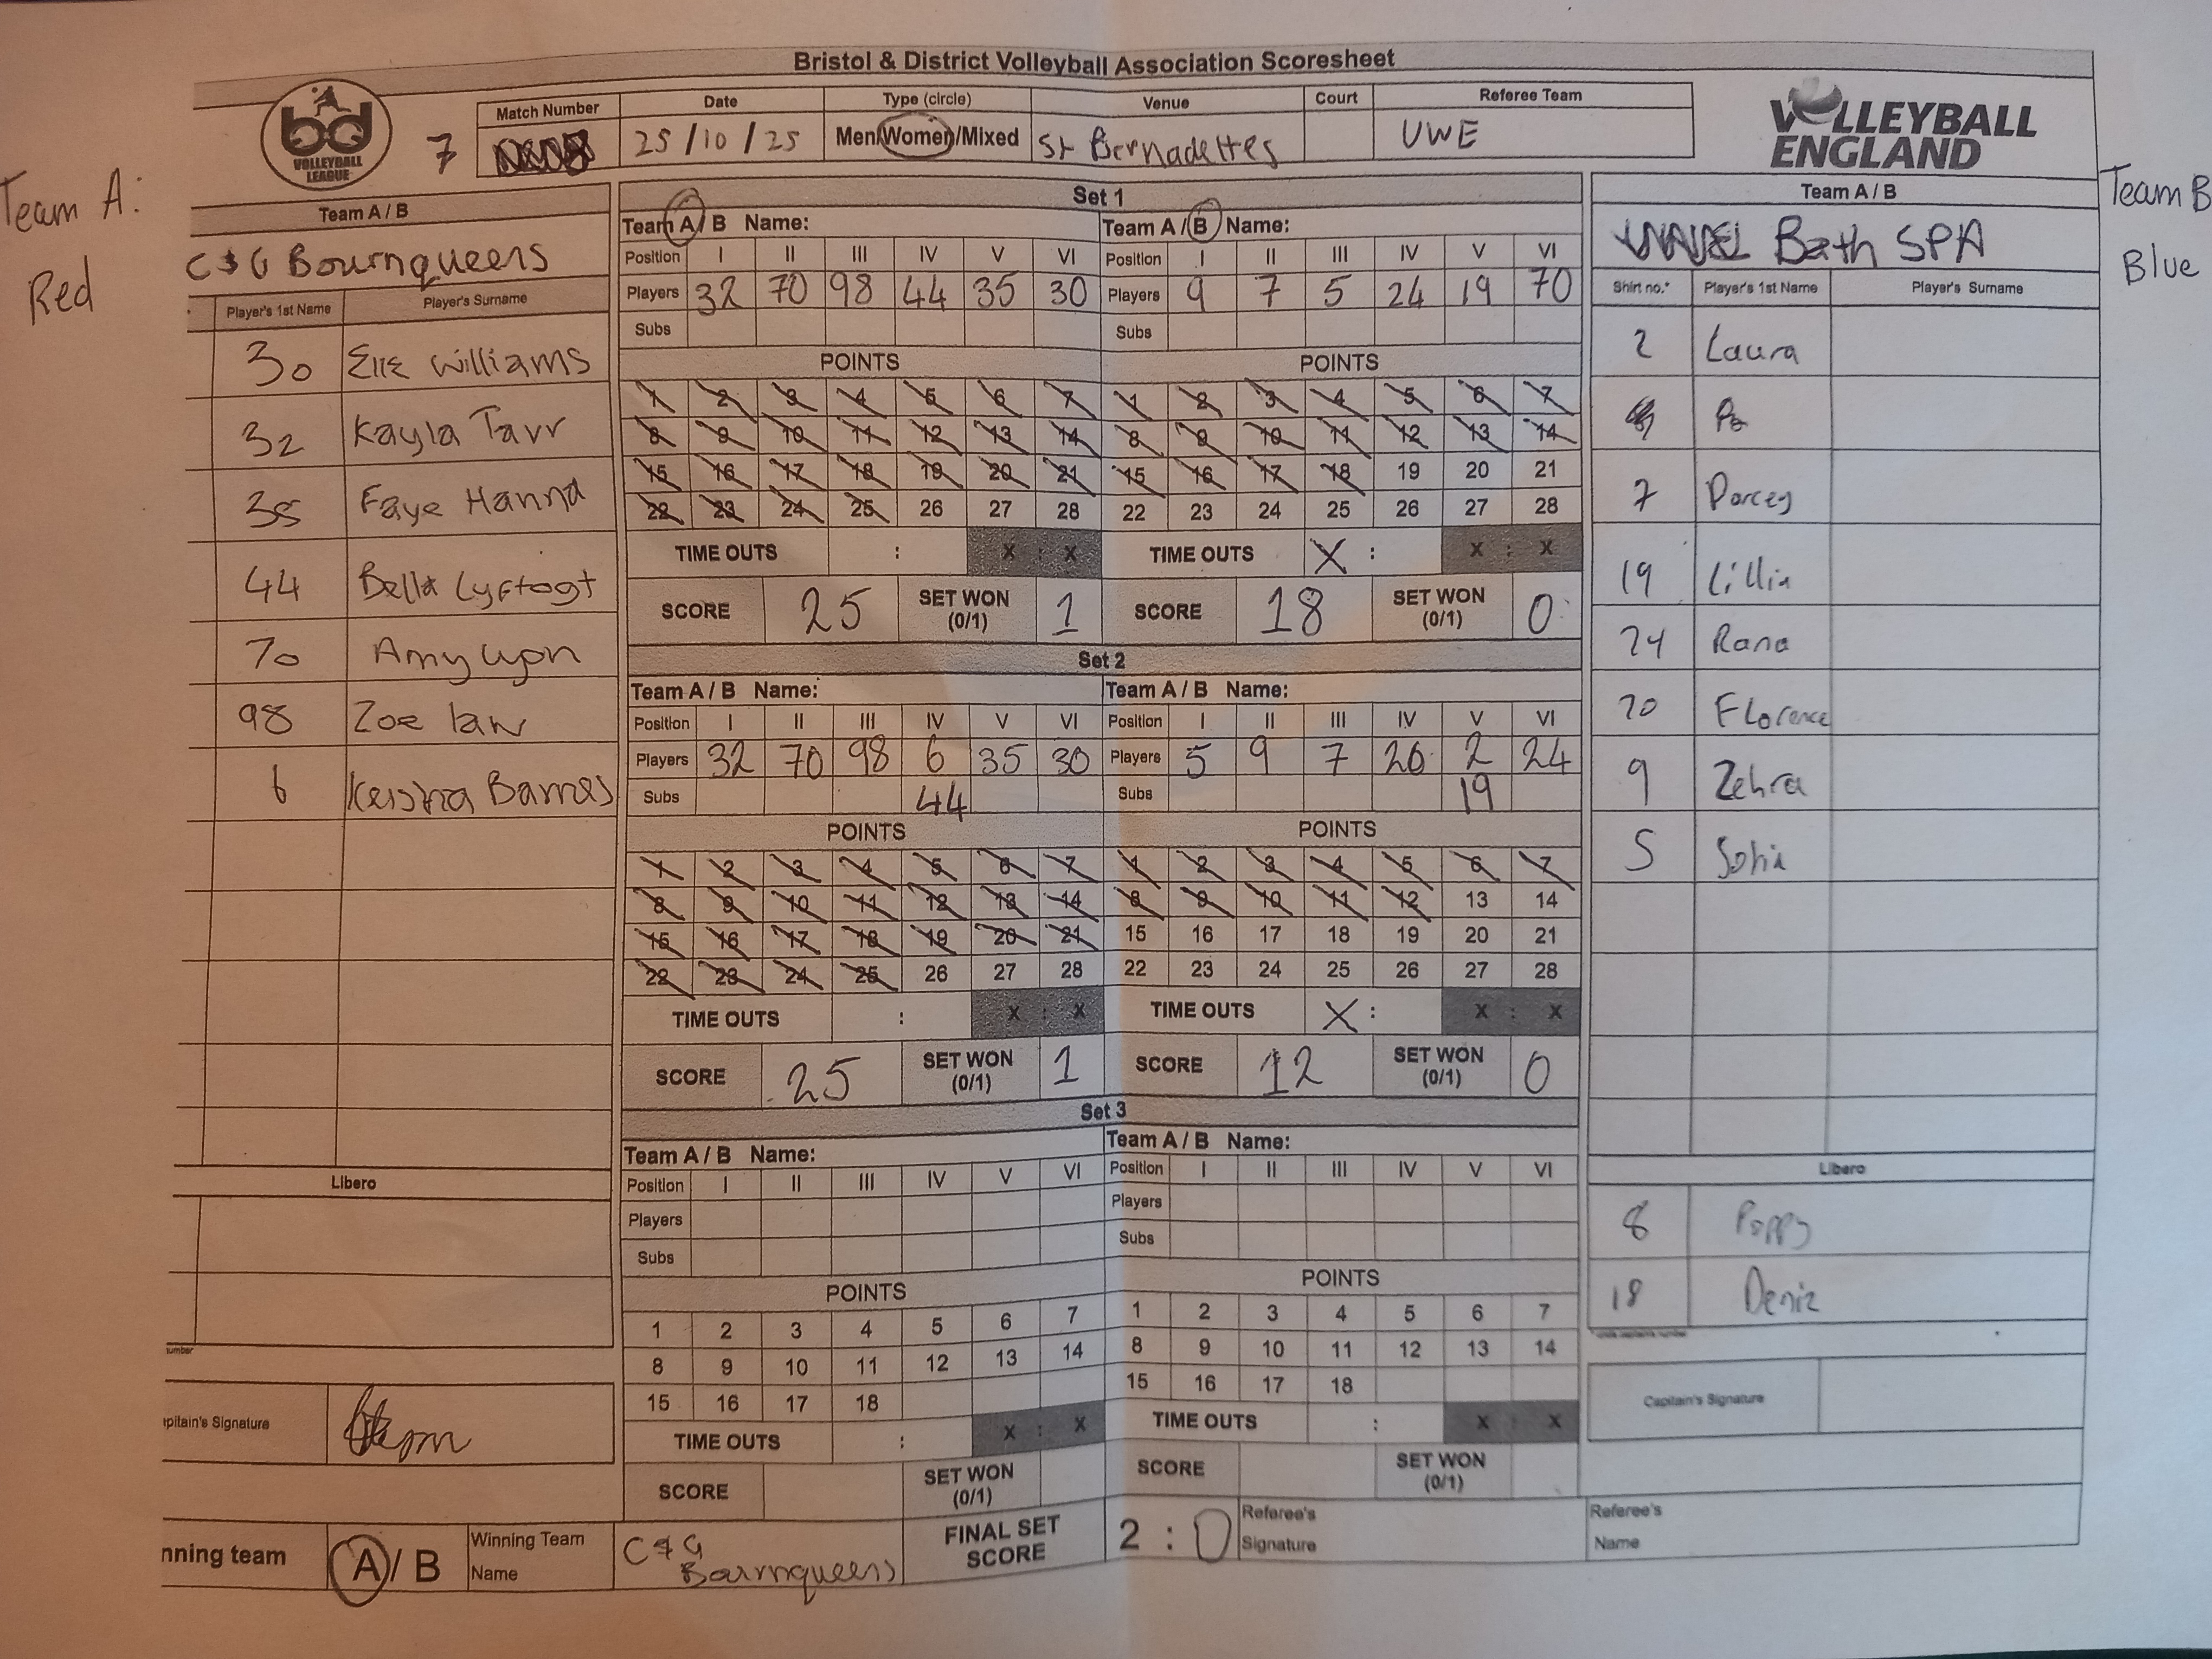 Bristol & District Volleyball Association Scoresheet
bd
VOLLEYBALL
LEAGUE
7
Match Number
Date
25/10/25
Type (circle)
Men/Women/Mixed
Venue
St Bernadettes
Court
Referee Team
UWE
VOLLEYBALL
ENGLAND
Team A:
Red
Team B
Blue
Team A / B
C & G Bournqueens
Player's 1st Name Player's Surname
30 Elle Williams
32 Kayla Tarr
35 Faye Hannd
44 Bella Lyftogt
70 Amy
98 Zoe law
6 Barnes
Libero
umber
apitain's Signature
nning team A / B
Winning Team
Name
C & G
Bournqueens
Set 1
Team A / B Name: Team A / B Name:
Position I II III IV V VI Position I II III IV V VI
Players 32 70 98 44 35 30 Players 9 7 5 24 19 70
Subs Subs
POINTS POINTS
1 2 3 4 5 6 7 1 2 3 4 5 6 7
8 9 10 11 12 13 14 8 9 10 11 12 13 14
15 16 17 18 19 20 21 15 16 17 18 19 20 21
22 23 24 25 26 27 28 22 23 24 25 26 27 28
TIME OUTS : X : X TIME OUTS X : X : X
SCORE 25 SET WON (0/1) 1 SCORE 18 SET WON (0/1) 0
Set 2
Team A / B Name: Team A / B Name:
Position I II III IV V VI Position I II III IV V VI
Players 32 70 98 6 35 30 Players 5 9 7 20 2 24
Subs 44 Subs 19
POINTS POINTS
1 2 3 4 5 6 7 1 2 3 4 5 6 7
8 9 10 11 12 13 14 8 9 10 11 12 13 14
15 16 17 18 19 20 21 15 16 17 18 19 20 21
22 23 24 25 26 27 28 22 23 24 25 26 27 28
TIME OUTS : X : X TIME OUTS X : X : X
SCORE 25 SET WON (0/1) 1 SCORE 12 SET WON (0/1) 0
Set 3
Team A / B Name: Team A / B Name:
Position I II III IV V VI Position I II III IV V VI
Players Players
Subs Subs
POINTS POINTS
1 2 3 4 5 6 7 1 2 3 4 5 6 7
8 9 10 11 12 13 14 8 9 10 11 12 13 14
15 16 17 18 15 16 17 18
TIME OUTS : X : X TIME OUTS : X : X
SCORE SET WON (0/1) SCORE SET WON (0/1)
FINAL SET
SCORE
2 : 0
Referee's
Signature
Referee's
Name
Team A / B
Bath SPA
Shirt no.* Player's 1st Name Player's Surname
2 Laura
7 Darcey
19 Lillia
24 Rana
70 Florence
9 Zehra
5 Sofia
Libero
8 Poppy
18 Deniz
Capitain's Signature